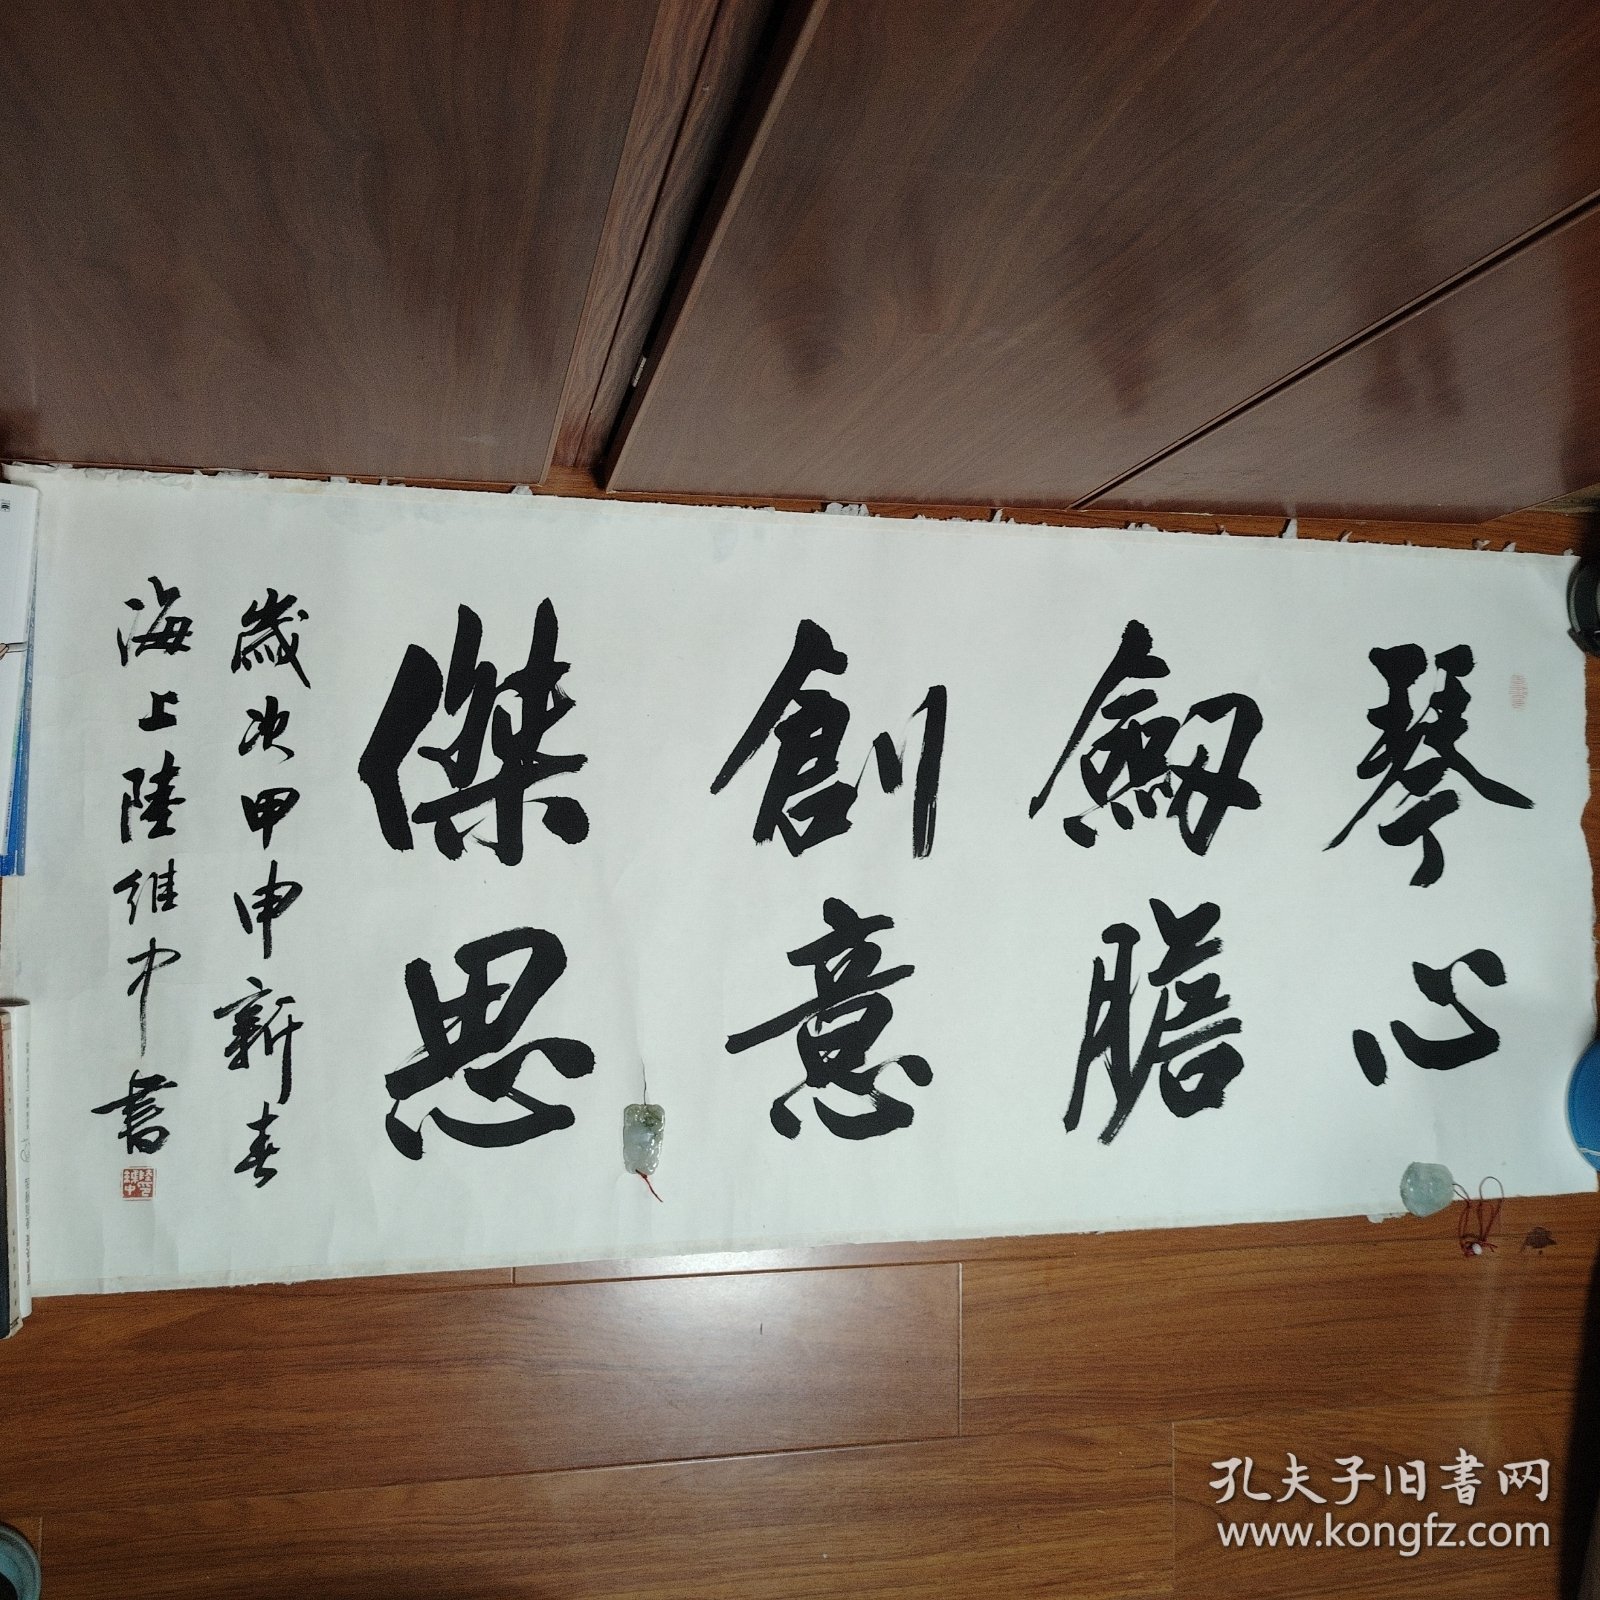 琴心
劔膽
創意
傑思
歲次甲申新春
海上陸維中書
孔夫子旧书网
www.kongfz.com